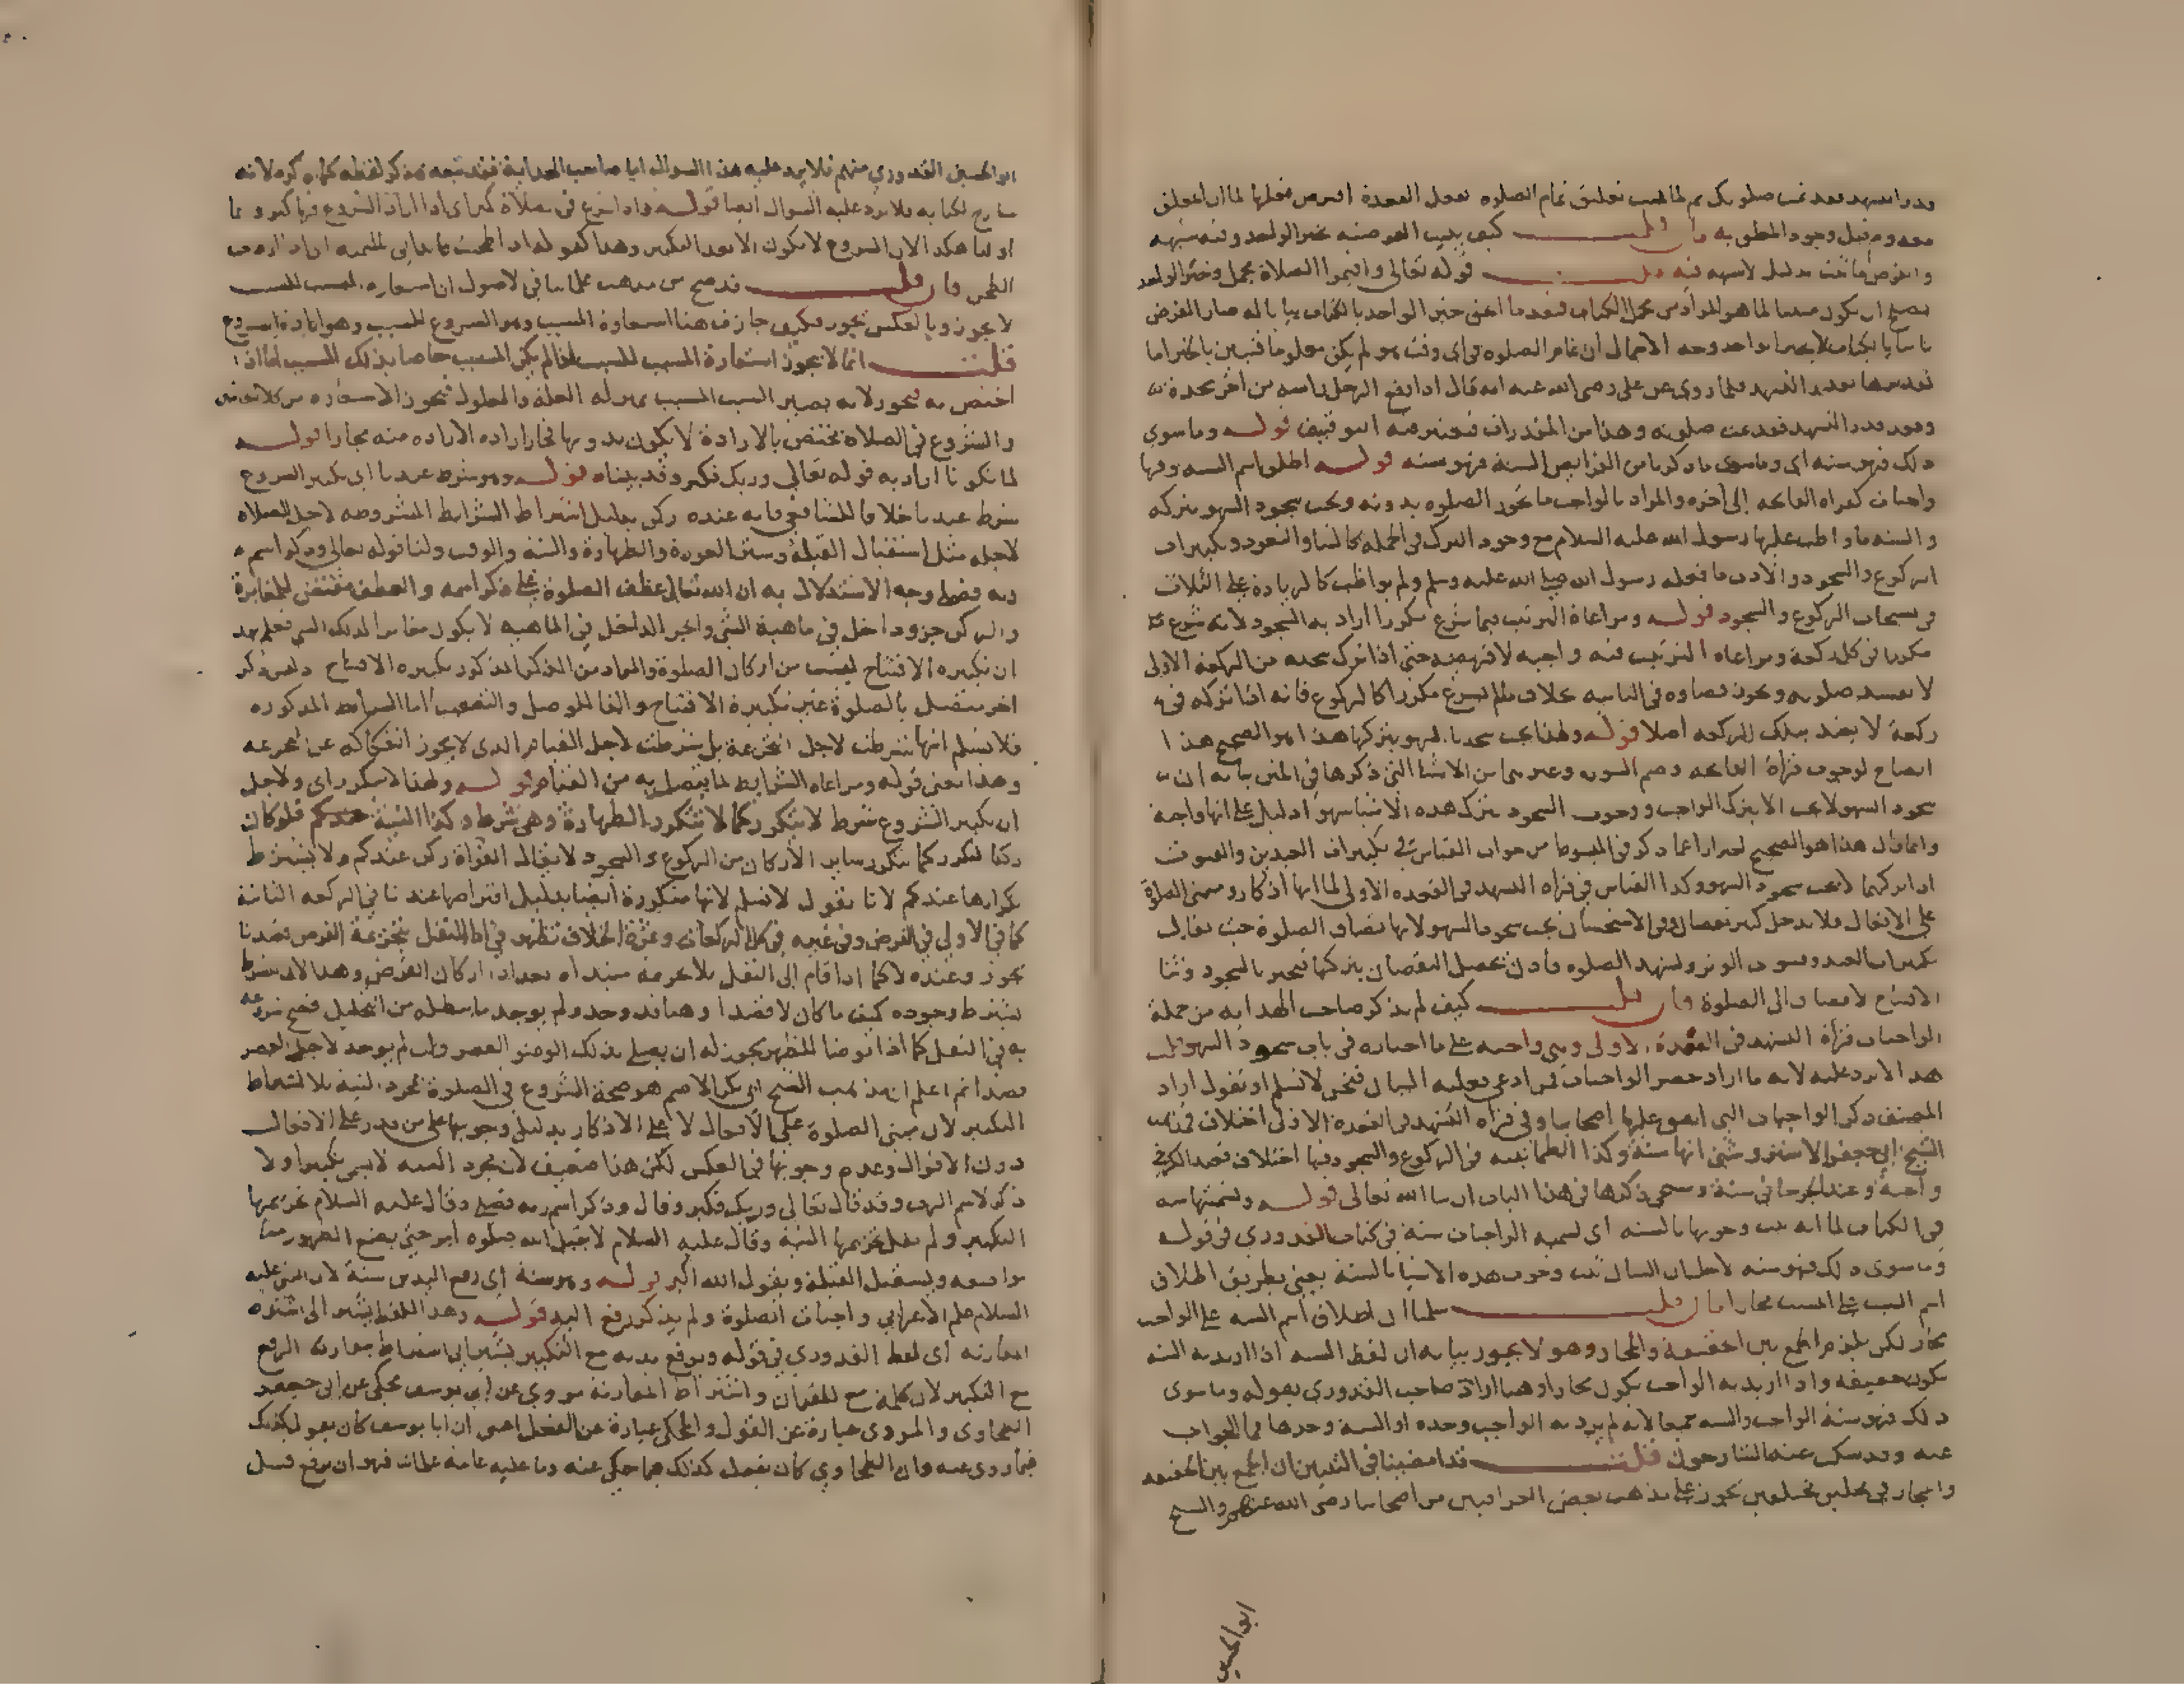 قدر التشهد فقد تمت صلوتك ثم لما ثبت تعليق تمام الصلوه بفعل القعدة افترض فعلها لما ان المعلق
معدوم قبل وجود المعلق به فان قلت كيف يثبت الفرضيه بخبر الواحد وفيه شبهه
والفرض ما ثبت بدليل لا شبهه فيه قلت قوله تعالى واقيموا الصلاة مجمل وخبر الواحد
يصلح ان يكون مبينا لما هو المراد من مجمل الكتاب فبعد ما اعنى خبر الواحد بالكتاب بيانا له صار الفرض
ثابتا بالكتاب لا بخبر الواحد وجه الاجمال ان تمام الصلوه في اي وقت هو لم يكن معلوما فتبين بالخبر اما
تقديرها بقدر التشهد فلما روي عن علي رضي الله عنه انه قال اذا رفع الرجل راسه من اخر سجدة
وقعد قدر التشهد فقد تمت صلوته وهذا من المقدرات قوله وما سوى
ذلك فهو سنه اي وما سوى ما ذكرنا من الفرايض السنة فهو سنه قوله اطلق اسم السنه وفيها
واجبات كقراه الفاتحه إلى اخره والمراد بالواجب ما تجوز الصلوه بدونه ويجب سجود السهو بتركه
والسنه ما واظب عليها رسول الله عليه السلام مع وجود الترك في الجمله كالثنا والتعود وتكبيرات
الركوع والسجود والادب ما فعله رسول الله صلى الله عليه وسلم ولم يواظب كالزيادة على الثلاث
في تسبيحات الركوع والسجود قوله ومراعاة الترتيب فيما شرع مكررا اراد به السجود لانه شرع
مكررا في كل ركعة ومراعاه الترتيب فيه واجبه لا فريضه حتى اذا ترك سجده من الركعة الاولى
لا تفسد صلوته ويجوز قضاوه في الثانيه بخلاف ما لم يشرع مكررا كالركوع فانه اذا تركه في
ركعة لا يعتد بتلك الركعه اصلا قوله ولهذا يجب سجدتا السهو بتركها هذا هو الصحيح هذا
ايضاح لوجوب قراة الفاتحه وضم السوره وغيرهما من الاشيا التي ذكرها في المتن بيانه ان
سجود السهو لا يجب الا بترك الواجب ووجوب السجود بترك هذه الاشيا سهوا دليل على انها واجبة
وانما قال هذا هو الصحيح احترازا عما ذكر في المبسوط من جواب القياس في تكبيرات العيدين والقنوت
اذا تركهما لا يجب سجود السهو وكذا القياس في قراه التشهد في القعده الاولى لما انها اذكار ومبنى الصلاة
على الافعال فلا يدخل كبير نقصان وفي الاستحسان يجب سجود السهو لانها تضاف الصلوة حيث يقال
تكبيرات العيد وقنوت الوتر وتشهد الصلوه فاذن تحصل النقصان بتركها فيجبر بالسجود وثنا
الافتتاح لا يضاف الى الصلوة فان قلت كيف لم يذكر صاحب الهدايه من جملة
الواجبات قراة التشهد في القعدة الاولى وهي واجبه على ما اختاره في باب سجود السهو قلت
هذا لا يرد عليه لانه ما اراد حصر الواجبات فمن ادعى فعليه البيان فنحن لا نسلم او نقول اراد
المصنف ذكر الواجبات التي اتفق عليها اصحابنا وفي قراه التشهد في القعده الاولى اختلاف
الشيخ ابي جعفر الاستروشني انها سنة وكذا الطمانينه في الركوع والسجود فيها اختلاف فعند الكرخي
واجبة وعند الجرجاني سنة وسيجي ذكرها في هذا الباب ان شا الله تعالى قوله وتسميتها سنه
في الكتاب لما انه ثبت وجوبها بالسنه اي تسميه الواجبات سنة في كتاب القدوري في قوله
وما سوى ذلك فهو سنه وجوب هذه الاشيا بالسنة يعني بطريق اطلاق
اسم السبب على المسبب مجازا فان قلت سلمنا ان اطلاق اسم السنه على الواجب
مجاز لكن يلزم الجمع بين الحقيقة والمجاز وهو لا يجوز بيانه ان لفظ السنه اذا اريد به السنه
يكون حقيقه واذا اريد به الواجب يكون مجازا وهنا اراد صاحب القدوري بقوله وما سوى
ذلك فهو سنة الواجب والسنه جميعا لانه لم يرد به الواجب وحده او السنة وحدها فما الجواب
عنه وقد سكت عنه الشارحون قلت قد امضينا في التبيين ان الجمع بين الحقيقه
والمجاز في محلين مختلفين يجوز على مذهب بعض العراقيين من اصحابنا رضي الله عنهم والشيخ
ابو الحسين
ابو الحسين القدوري منهم فلا يرد عليه هذا السوال اما صاحب الهداية فقد تبعه فذكر لفظه كما ذكره لانه
شارح لكتابه فلا يرد عليه السوال ايضا قوله واذا شرع في صلاة كبر اي اذا اراد الشروع فيها كبر وانما
اولنا هكذا لان الشروع لا يكون الا بعد التكبير وهذا كقوله اذا
فان قلت قد صح من مذهب علماينا في الاصول ان استعاره المسبب للسبب
لا يجوز وبالعكس يجوز فكيف جاز في هذا استعارة المسبب وهو الشروع للسبب وهو ارادة الشروع
قلت انما لا يجوز استعارة المسبب للسبب اذا لم يكن المسبب خاصا بذلك السبب اما اذا
اختص به فيجوز لانه يصير السبب المسبب بمنزله العلة والمعلول فيجوز الاستعاره من كلا
والشروع في الصلاة مختص بالارادة لا يكون بدونها فجاز اراده الاراده منه مجازا قوله
لما تلونا اراد به قوله تعالى وربك فكبر وقد بيناه قوله وهو شرط عندنا اي تكبير الشروع
شرط عندنا خلافا للشافعي فانه عنده ركن بدليل اشتراط الشرايط المشروطه لاجل الصلاه
لاجله مثل استقبال القبلة وستر العورة والطهارة والنية والوقت ولنا قوله تعالى وذكر اسم
ربه فصلى وجه الاستدلال به ان الله تعالى عطف الصلوة على ذكر اسمه والعطف مقتضي للمغايرة
والركن جزو داخل في ماهية الشي والجزء الداخل في الماهيه لا يكون مغايرا لذلك الشي فعلم بهذا
ان تكبيره الافتتاح ليست من اركان الصلوة والمراد من الذكر المذكور تكبيره الافتتاح ذكر
اخر متصل بالصلوة غير تكبيرة الافتتاح والفا للوصل والتعقيب اما الشرايط المذكوره
فلا نسلم انها شرطت لاجل التحريمة بل شرطت لاجل القيام الذي لا يجوز انفكاكه عن التحريمه
وهذا معنى قوله ومراعاه الشرايط لما يتصل به من القيام قوله ولهذا لا يتكرر اي ولاجل
ان تكبير الشروع شرط لا يتكرر كما لا تتكرر الطهارة وهي شرط وكذا النية عندكم فلو كان
ركنا لتكرر كما تتكرر ساير الاركان من الركوع والسجود لا يقال القراة ركن عندكم ولا يشترط
تكرارها عندكم لانا نقول لا نسلم لانها متكررة ايضا بدليل افتراضها عندنا في الركعه الثانية
كما في الاولى في الفرض وفي غيره في كل الركعات وثمرة الخلاف تظهر في بنا النفل بتحريمة الفرض فعندنا
يجوز وعنده لا كما اذا قام الى النفل بلا تحريمه مبتداه بعد اداء اركان الفرض وهذا لان شرط
يشترط وجوده كيف ما كان لا قصدا وهنا قد وجد ولم يوجد ما يبطله من التحليل فصح شروعه
به في النفل كما اذا توضا للظهر يجوز له ان يصلي بذلك الوضو العصر وان لم يوجد لاجل العصر
قصدا ثم اعلم ان مذهب الشيخ ابي بكر الاصم هو صحة الشروع في الصلوة بمجرد النية بلا اشتراط
التكبير لان مبنى الصلوة على الافعال لا على الاذكار بدليل وجوبها على من يقدر على الافعال
دون الاقوال وعدم وجوبها في العكس لكن هذا ضعيف لان مجرد النيه لا يسمى تكبيرا ولا
ذكرا لاسم الرب وقد قال تعالى وربك فكبر وقال وذكر اسم ربه فصلى وقال عليه السلام تحريمها
التكبير ولم يقل تحريمها النية وقال عليه السلام لا يقبل الله صلوه امر حتى يضع الطهور
مواضعه ويستقبل القبلة ويقول الله اكبر قوله وهو سنة اي رفع اليدين سنة لان النبي عليه
السلام علم الاعرابي واجبات الصلوة ولم يذكر رفع اليد قوله وهذا اللفظ يشير الى اشتراط
المقارنه اي لفظ القدوري في قوله ويرفع يديه مع التكبير يشير الى اشتراط مقارنه الرفع
مع التكبير لان كلمة مع للقران واشتراط المقارنة مروي عن ابي يوسف محكي عن ابي جعفر
الطحاوي والمروي عبارة عن القول والمحكي عبارة عن الفعل اعني ان ابا يوسف كان يقول كذلك
فيما روي عنه وان الطحاوي كان يفعل كذلك فيما حكي عنه وما عليه عامة علمائنا فهو ان يرفع قبل